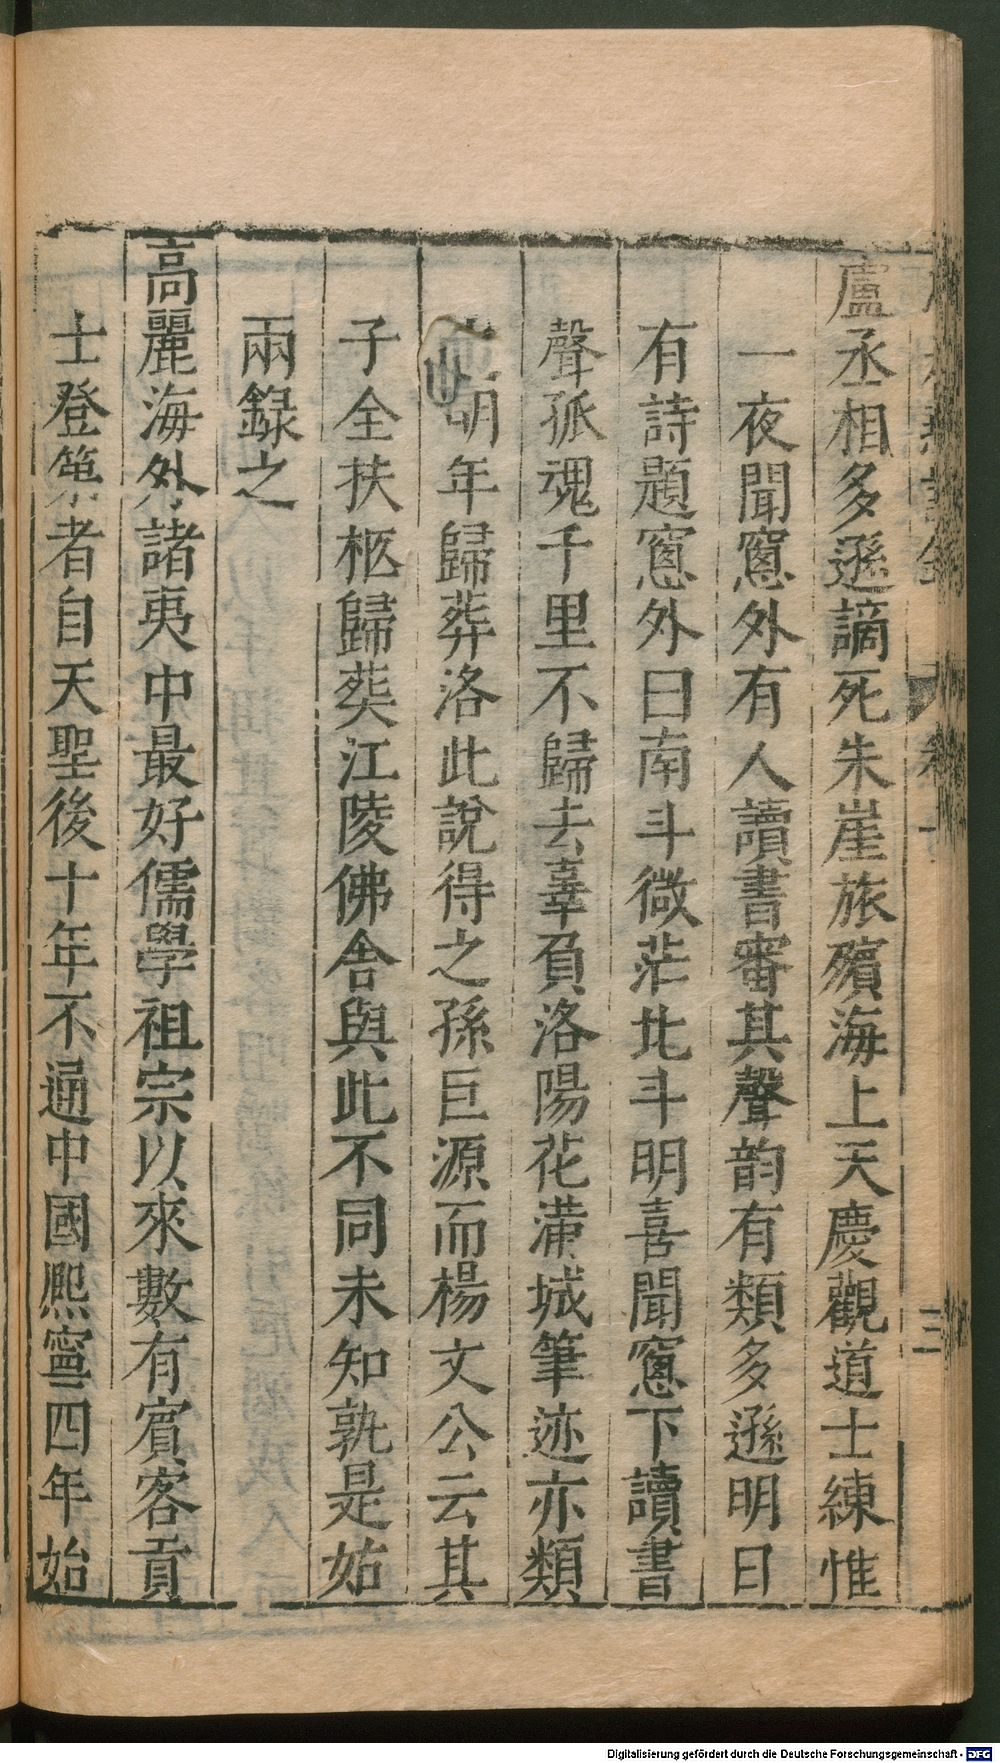 盧丞相多遜謫死朱崖旅殯海上天慶觀道士練惟
一夜聞窻外有人讀書審其聲韵有類多遜明日
有詩題窻外曰南斗微茫北斗明喜聞窻下讀書
聲孤魂千里不歸去辜負洛陽花滿城筆迹亦類
明年歸葬洛此說得之孫巨源而楊文公云其
子全扶柩歸葬江陵佛舍與此不同未知孰是姑
兩錄之
高麗海外諸夷中最好儒學祖宗以來數有賓客貢
士登第者自天聖後十年不通中國熈寧四年始
三
Digitalisierung gefördert durch die Deutsche Forschungsgemeinschaft - DFG